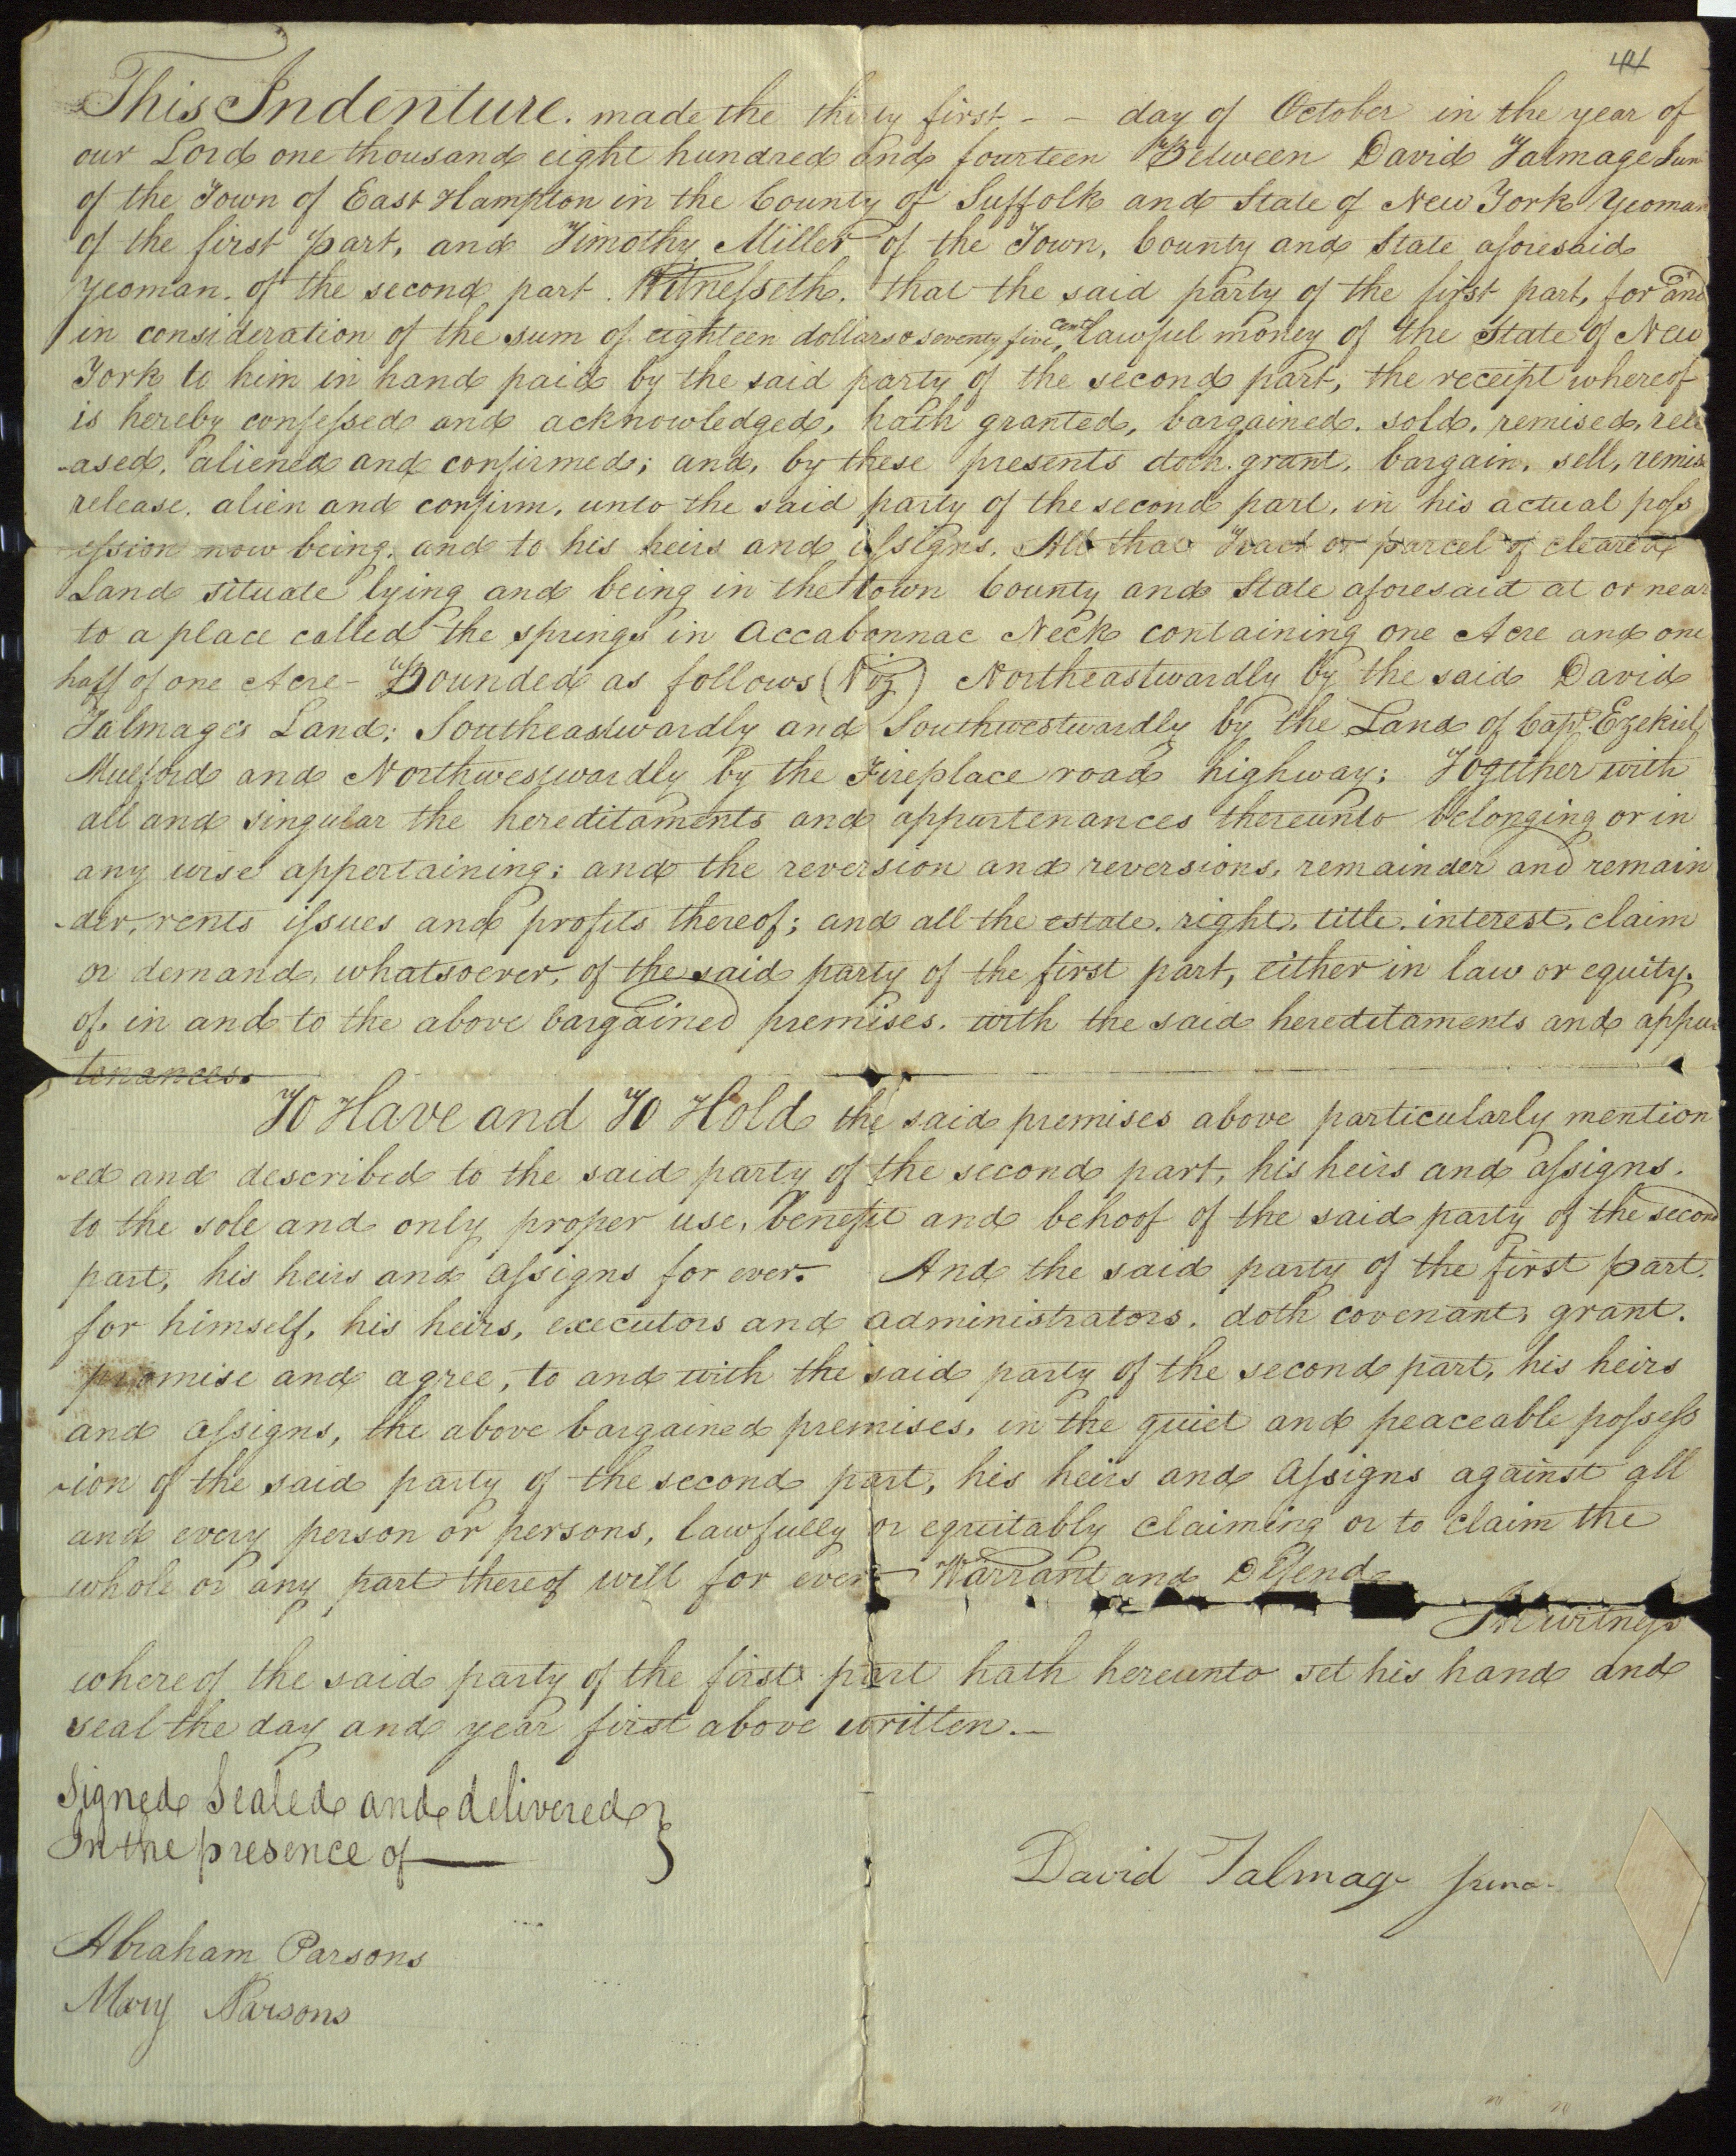 44
This Indenture. made the thirty first - - day of October in the year of
our Lord one thousand eight hundred and fourteen Between David Talmage Jun
of the Town of East Hampton in the County of Suffolk and State of New York Yeoman
of the first part, and Timothy Miller of the Town, County and State aforesaid
yeoman. of the second part. Witnesseth. that the said party of the first part, for and
in consideration of the sum of eighteen dollars & seventy five cents Lawful money of the State of New
York to him in hand paid by the said party of the second part, the receipt whereof
is hereby confessed and acknowledged, hath granted, bargained. sold. remised, rele
-ased, aliened and confirmed; and, by these presents doth. grant, bargain, sell, remis
release. alien and confirm, unto the said party of the second part, in his actual poss
ession now being, and to his heirs and assigns. All that Tract or parcel of cleared
Land situate lying and being in the town County and State aforesaid at or near
to a place called the springs in Accabonnac Neck containing one Acre and one
half of one Acre - Bounded as follows (Viz) Northeastwardly by the said David
Talmages Land; Southeastwardly and Southwestwardly by the Land of Capt Ezekiel
Mulford and Northwestwardly by the Fireplace road highway; Together with
all and singular the hereditaments and appurtenances thereunto belonging or in
any wise appertaining; and the reversion and reversions, remainder and remain
-der, rents issues and profits thereof; and all the estate. right, title. interest. claim
or demand, whatsoever, of the said party of the first part, either in law or equity.
of. in and to the above bargained premises. with the said hereditaments and appur
tenances.
To Have and To Hold the said premises above particularly mention
-ed and described to the said party of the second part, his heirs and assigns.
to the sole and only proper use, benefit and behoof of the said party of the second
part, his heirs and assigns for ever. And the said party of the first part.
for himself, his heirs, executors and administrators. doth covenant, grant.
promise and agree, to and with the said party of the second part, his heirs
and assigns, the above bargained premises, in the quiet and peaceable possess
-ion of the said party of the second part, his heirs and assigns against all
and every person or persons, lawfully or equitably claiming or to claim the
whole or any part thereof will for ever Warrant and Defend
In witness
whereof the said party of the first part hath hereunto set his hand and
seal the day and year first above written.—
Signed Sealed and delivered }
In the presence of —
David Talmage Junr
Abraham Parsons
Mary Parsons